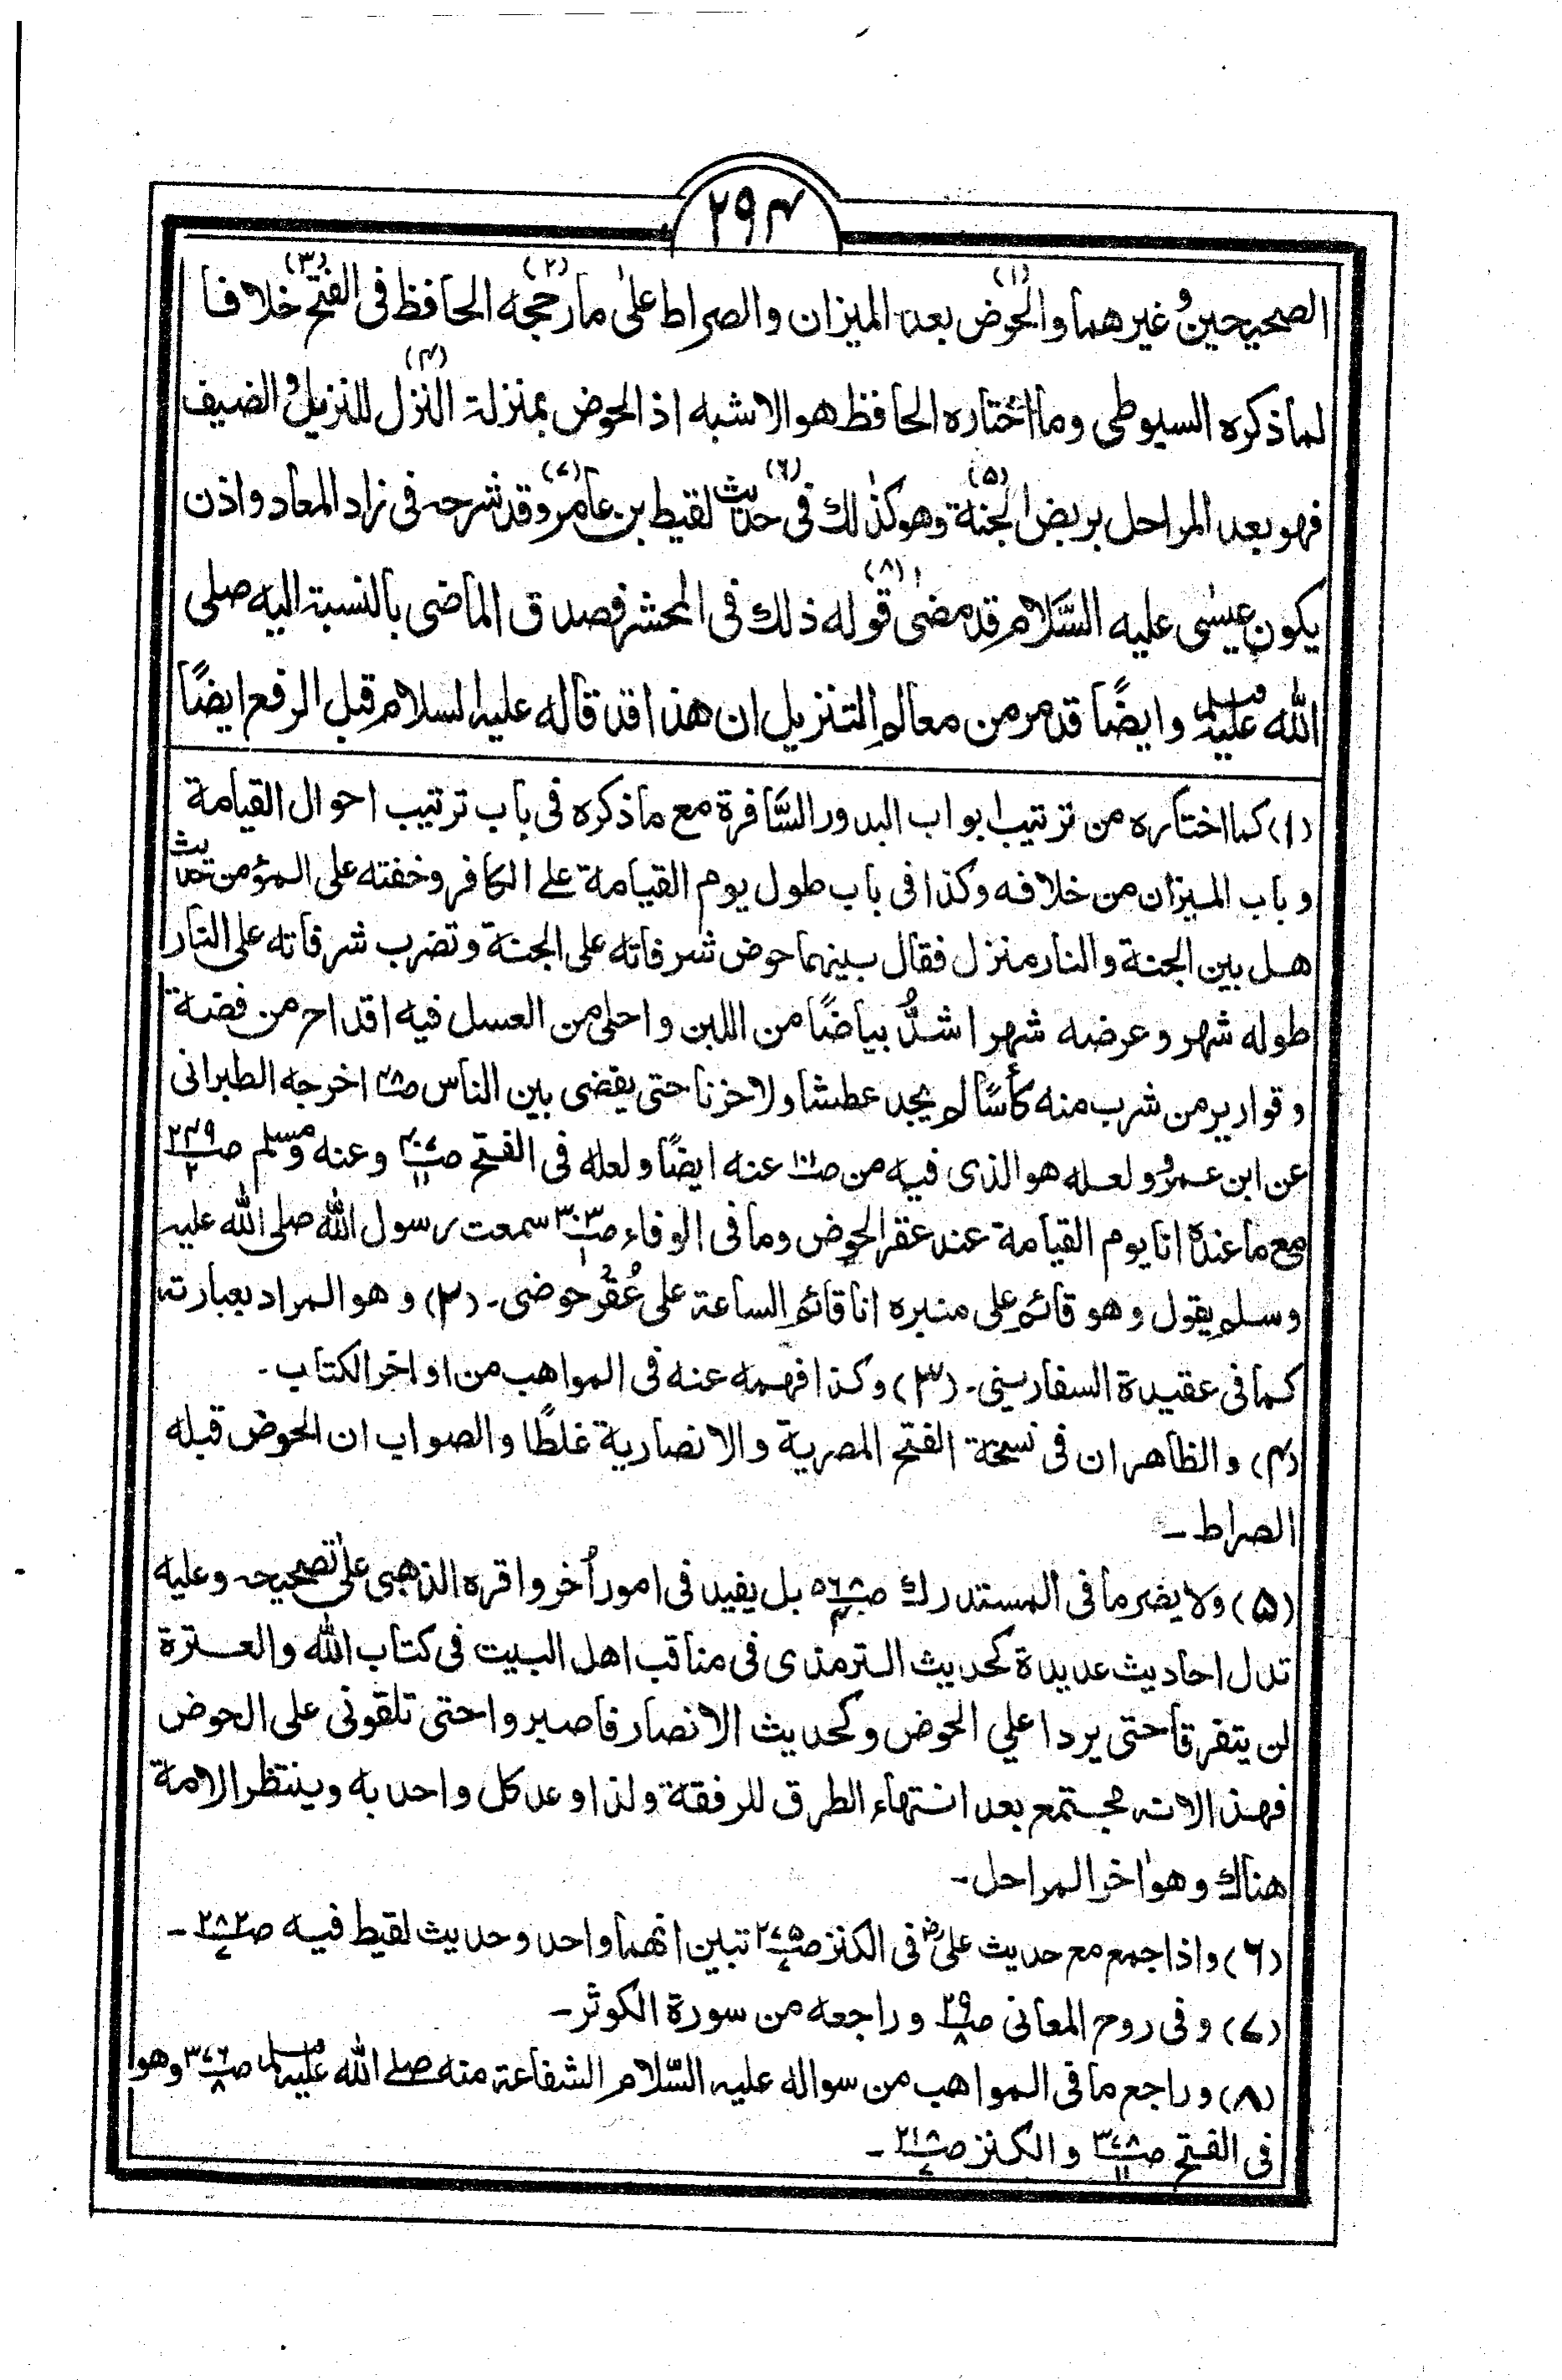 ۲۹۴
الصحيحين وغيرهما والحوض(۱) بعد الميزان والصراط على ما رجحه(۲) الحافظ فى الفتح(۳) خلافا
لما ذكره السيوطى وما اختاره الحافظ هو الاشبه اذ الحوض بمنزلة النزل(۴) للنزيل والضيف
فهو بعد المراحل بربض الجنة(۵) وهو كذٰلك فى حديث(۶) لقيط بن عامر(۷) وقد شرحه فى زاد المعاد واذن
يكون عيسٰى عليه السَّلام قد مضى قوله(۸) ذلك فى المحشر فصدق الماضى بالنسبة اليه صلى
الله عليه وسلم وايضًا قد مر من معالم التنزيل ان هذا قد قاله عليه السلام قبل الرفع ايضًا
(۱) كما اختاره من ترتيب ابواب البدور السَّافرة مع ما ذكره فى باب ترتيب احوال القيامة
و باب الميزان من خلافه وكذا فى باب طول يوم القيامة على الكافر وخفته على المؤمن حديث
هل بين الجنة والنار منزل فقال بينهما حوض شرفاته على الجنة وتضرب شرفاته على النار
طوله شهر وعرضه شهر اشدُّ بياضًا من اللبن واحلى من العسل فيه اقداح من فضة
و قوارير من شرب منه كأسًا لم يجد عطشا ولا حزنا حتى يقضى بين الناس اخرجه الطبرانى
عن ابن عمرو ولعله هو الذى فيه من عنه ايضًا ولعله فى الفتح وعنه مسلم ص۲۴۹/۲
مع ما عنده انا يوم القيامة عند عقر الحوض وما فى الوفاء ص۳۰۳/۱ سمعت رسول الله صلى الله عليه
وسلم يقول وهو قائم على منبره انا قائم الساعة على عُقُر حوضى۔ (۲) وهو المراد بعبارته
كما فى عقيدة السفارينى۔ (۳) وكذا فهمه عنه فى المواهب من اواخر الكتاب۔
(۴) والظاهر ان فى نسخة الفتح المصرية والانصارية غلطًا والصواب ان الحوض قبله
الصراط۔
(۵) ولا يضر ما فى المستدرك ص۵۶۸/۴ بل يفيد فى امور اُخر واقره الذهبى على تصحيحه وعليه
تدل احاديث عديدة كحديث الترمذى فى مناقب اهل البيت فى كتاب الله والعترة
لن يتفرقا حتى يردا علي الحوض وكحديث الانصار فاصبروا حتى تلقونى على الحوض
فهذا لانه مجتمع بعد انتهاء الطرق للرفقة ولذا وعد كل واحد به وينتظر الامة
هناك وهو اٰخر المراحل۔
(۶) واذا جمع مع حديث علىؓ فى الكنز ص۲۷۵/۷ تبين انهما واحد وحديث لقيط فيه ص۲۸۲/۷۔
(۷) وفى روح المعانى ص۲۹/۸ وراجعه من سورة الكوثر۔
(۸) وراجع ما فى المواهب من سواله عليه السّلام الشفاعة منه صلى الله عليه وسلم ص۳۷۶/۸ وهو
فى الفتح ص۳۷۸/۱۱ والكنز ص۲۱۸/۷۔